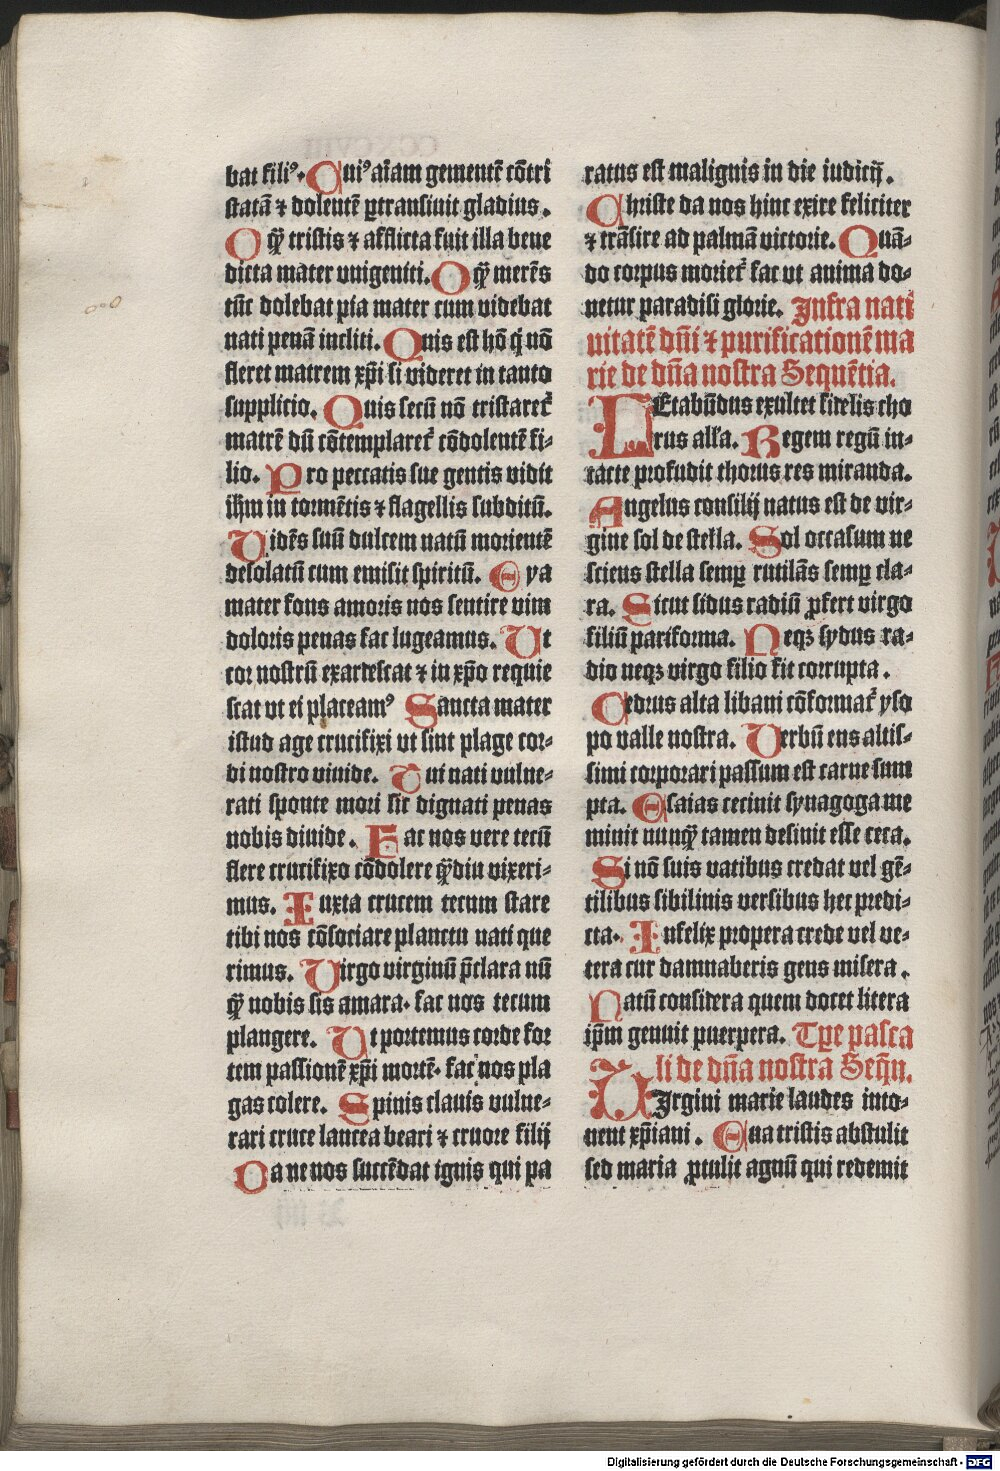 bat filiꝰ. Cuiꝰ aīam gementē cōtri
statā ⁊ dolentē ꝑtransiuit gladius.
O qͣ̄ tristis ⁊ afflicta fuit illa bene
dicta mater vnigeniti. O qͣ̄ merēs
tūc dolebat pia mater cum videbat
nati penā incliti. Quis est hō q̇ nō
fleret matrem xp̄i si videret in tanto
supplicio. Quis secū nō tristaretᷣ
matrē dū cōtemplaretᷣ cōdolentē fi-
lio. Pro peccatis sue gentis vidit
ihm̄ in tormētis ⁊ flagellis subditū.
Vidēs suū dulcem natū morientē
desolatū cum emisit spiritū. Eya
mater fons amoris nos sentire vim
doloris penas fac lugeamus. Ut
cor nostrū exardescat ⁊ in xp̄o requie
scat vt ei placeamꝰ Sancta mater
istud age crucifixi vt sint plage cor-
di nostro viuide. Tui nati vulne-
rati sponte mori sic dignati penas
nobis diuide. Fac nos vere tecū
flere crucifixo cōdolere qͣ̄diu vixeri-
mus. Iuxta crucem tecum stare
tibi nos cōsociare planctu nati que
rimus. Virgo virginū p̄clara nū
qͣ̄ nobis sis amara. fac nos tecum
plangere. Ut portemus corde for
tem passionē xp̄i mortē. fac nos pla
gas colere. Spinis clauis vulne-
rari cruce lancea beari ⁊ cruore filij
Da ne nos succēdat ignis qui pa
ratus est malignis in die iudicij.
Christe da nos hinc exire feliciter
⁊ trāsire ad palmā victorie. Quā-
do corpus morietᷣ fac vt anima do-
netur paradisi glorie. Infra nati
uitatē dn̄i ⁊ purificationē ma
rie de dn̄a nostra Sequētia.
LEtabūdus exultet fidelis cho
rus all'a. Regem regū in-
tacte profudit thorus res miranda.
Angelus consilij natus est de vir-
gine sol de stella. Sol occasum ne
sciens stella semꝑ rutilās semꝑ cla-
ra. Sicut sidus radiū ꝓfert virgo
filiū pariforma. Neqꝫ sydus ra-
dio neqꝫ virgo filio fit corrupta.
Cedrus alta libani cōformatᷣ yso
po valle nostra. Verbū ens altis-
simi corporari passum est carne sum
pta. Esaias cecinit synagoga me
minit nunqͣ̄ tamen desinit esse ceca.
Si nō suis vatibus credat vel gē-
tilibus sibilinis versibus hec predi-
cta. Infelix propera crede vel ve-
tera cur damnaberis gens misera.
Natū considera quem docet litera
ip̄m genuit puerpera. Tꝑe pasca
li de dn̄a nostra Seqn̄.
VIrgini marie laudes into-
nent xp̄iani. Eua tristis abstulit
sed maria ꝓtulit agnū qui redemit
Digitalisierung gefördert durch die Deutsche Forschungsgemeinschaft - DFG